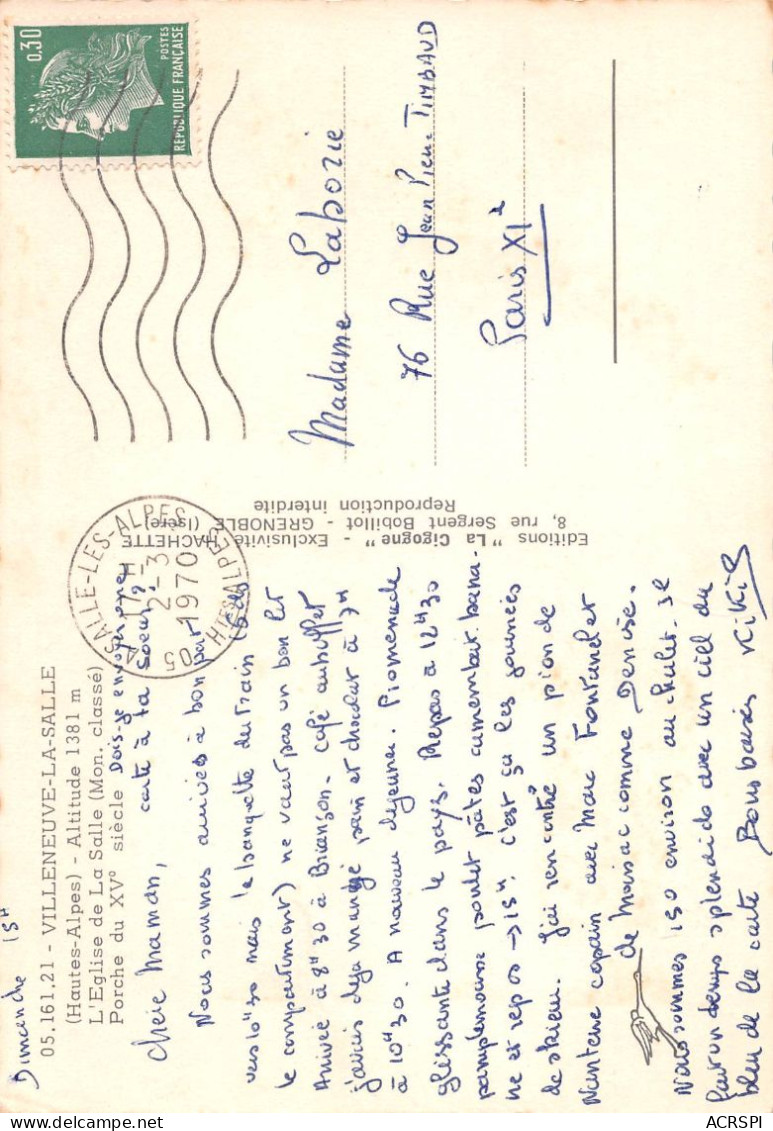 Dimanche 15H
05.161.21 - VILLENEUVE-LA-SALLE
(Hautes-Alpes) - Altitude 1381 m
L'Eglise de La Salle (Mon. classé)
Porche du XVe siècle
Dois-je envoyer une
carte à ta soeur ?
Chère Maman,
Nous sommes arrivés à bon port
vers 10H30 mais la banquette du train (
le compartiment) ne vaut pas un bon lit
Arrivée à 8H30 à Briançon. Café au buffet
j'avais déja mangé pain et chocolat à 7H
à 10H30. A nouveau déjeuner. Promenade
glissante dans le pays. Repas à 12H30
pamplemousse poulet pâtes camembert bana-
ne et repos → 15H. C'est ça les journées
de skieur. J'ai rencontré un pion de
Nanterre copain avec Marc Fontanel et
de Moissac comme Denise.
Nous sommes 150 environ au chalet. Il
fait un temps splendide avec un ciel du
bleu de la carte Bons baisers KiKi
Editions "La Cigogne" - Exclusivité HACHETTE
8, rue Sergent Bobillot - GRENOBLE (Isère)
Reproduction interdite
LA SALLE-LES-ALPES
17H
2-3
1970
05 HTES ALPES
0,30
POSTES
REPUBLIQUE FRANÇAISE
Madame Laborie
76 Rue Jean Pierre TIMBAUD
Paris XIe
ACRSPI